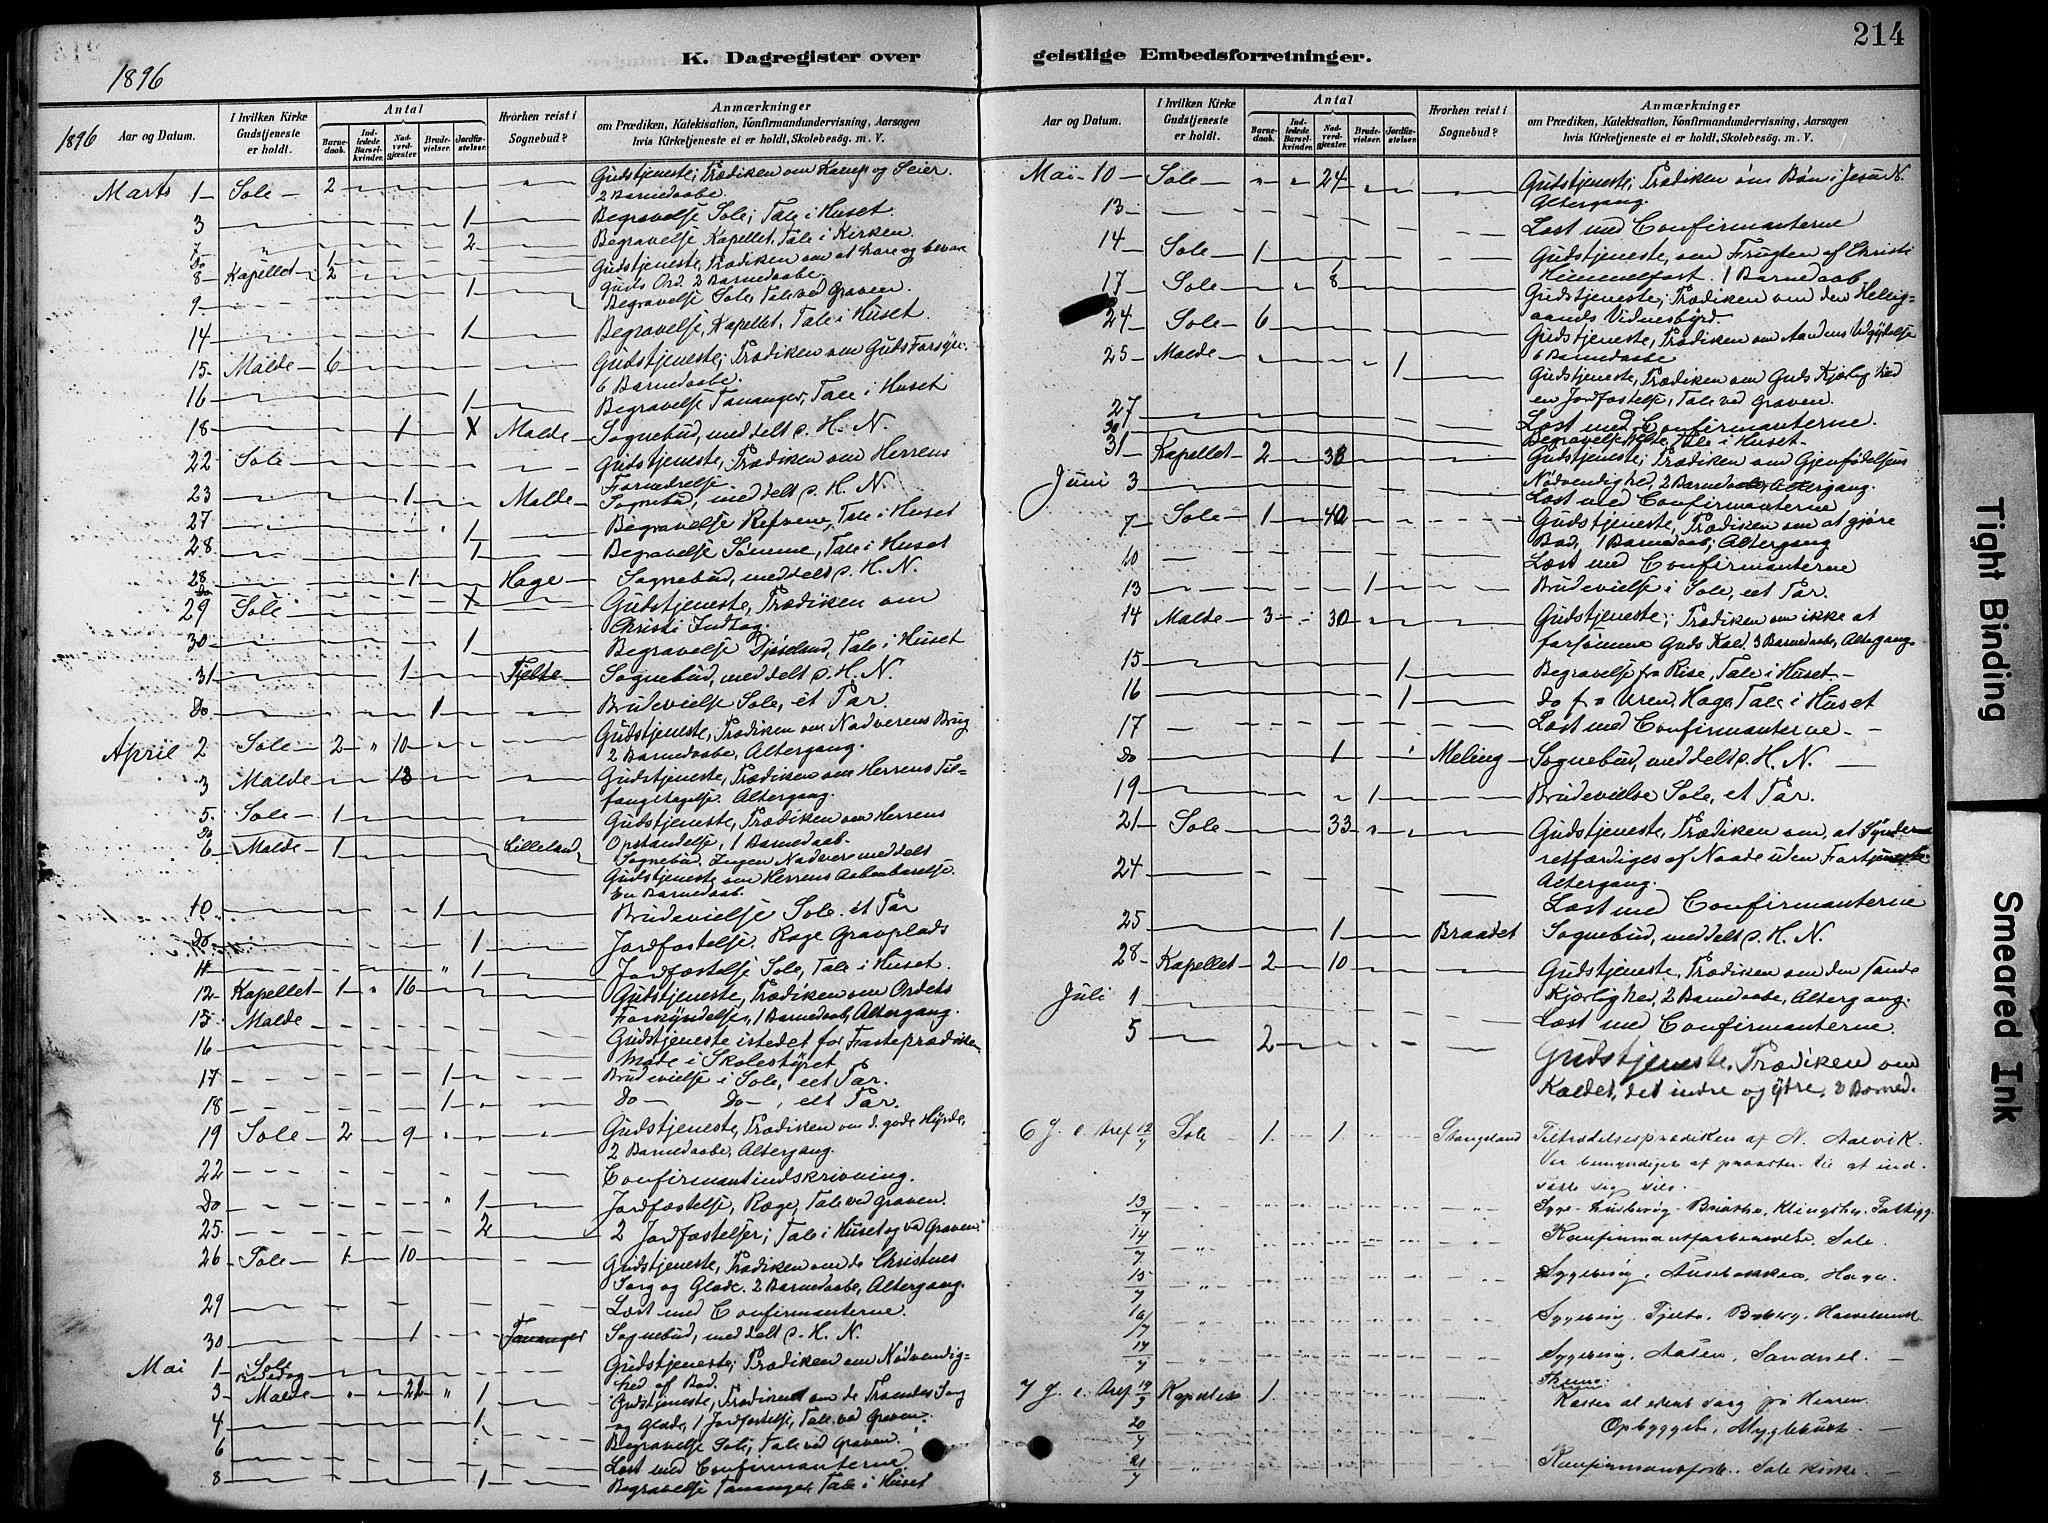 214
K. Dagregister over geistlige Embedsforretninger.
1896
1896
Aar og Datum.
I hvilken Kirke Gudstjeneste er holdt.
Antal
Barnedaab.
Indledede Barselkvinder.
Nadverdgjæster
Brudevielser.
Jordfæstelser.
Hvorhen reist i Sognebud?
Anmærkninger
om Prædiken, Katekisation, Konfirmandundervisning, Aarsagen
hvis Kirketjeneste ei er holdt, Skolebesøg. m. V.
Marts 1 Sole 2 Gudstjeneste; Prædiken om Kamp og Seier.
2 Barnedaabe.
3 1 Begravelse Sole; Tale i Huset.
7 2 Begravelse Kapellet, Tale i Kirken.
Do 1
8 Kapellet 2 Gudstjeneste, Prædiken om at høre og bevare
Guds Ord. 2 Barnedaabe.
9 1 Begravelse Sole, Tale ved Graven.
14 1 Begravelse, Kapellet, Tale i Huset.
15 Malde 6 Gudstjeneste; Prædiken om Guds Forsyn.
6 Barnedaabe.
16 1 Begravelse Tananger, Tale i Huset
18 1 Malde Sognebud, meddelt s. H. N.
22 Sole Gudstjeneste, Prædiken om Herrens
Fornedrelse.
23 1 Malde Sognebud, meddelt s. H. N.
27 1 Begravelse Refvene, Tale i Huset
28 1 Begravelse Sømme, Tale i Huset
28 1 Hage Sognebud, meddelt s. H. N.
Do
29 Sole Gudstjeneste, Prædiken om
Christi Indtog.
30 1 Begravelse Djøseland, Tale i Huset
31 1 Tjelte Sognebud, meddelt s. H. N.
Do 1 Brudevielse Sole, et Par.
April 2 Sole 2 10 Gudstjeneste, Prædiken om Nadverens Brug
2 Barnedaabe, Altergang.
3 Malde 18 Gudstjeneste, Prædiken om Herrens Til=
fangetagelse. Altergang.
5 Sole 1 Gudstjeneste, Prædiken om Herrens
Do Lilleland Opstandelse, 1 Barnedaab.
6 Malde 1 Sognebud. Ingen Nadvere meddelt
Gudstjeneste om Herrens Aabenbarelse.
En Barnedaab.
10 1 Brudevielse Sole et Par
Do 1 Jordfæstelse, Rage Gravplads
11 1 Jordfæstelse Sole, Tale i Huset.
12 Kapellet 1 16 Gudstjeneste, Prædiken om Ordets
Forkyndelse, 1 Barnedaab, Altergang.
15 Malde Gudstjeneste istedet for Fasteprædiken
16 Møde i Skolestyret
17 1 Brudevielse i Sole, eet Par.
18 1 Do Do, eet Par.
19 Sole 2 9 Gudstjeneste, Prædiken om d. gode Hyrde,
2 Barnedaabe, Altergang.
22 Confirmantindskrivning.
Do 1 Jordfæstelse, Rage, Tale ved Graven.
25 2 2 Jordfæstelser; Tale i Huset og ved Graven.
26 Sole 1 10 Gudstjeneste, Prædiken om de Christnes
Sorg og Glæde. 2 Barnedaabe, Altergang.
29 Læst med Confirmanterne.
30 1 Tananger Sognebud, meddelt s. H. N.
Mai 1 Sole Bededag Gudstjeneste; Prædiken om Nødvendig-
hed af Bod.
3 Malde 21 1 Gudstjeneste, Prædiken om de Troendes Sorg
og Glæde, 1 Jordfæstelse, Tale ved Graven.
4 1 Begravelse Sole, Tale ved Graven.
6 Læst med Confirmanterne.
8 1 Begravelse Tananger, Tale i Huset
Aar og Datum.
I hvilken Kirke Gudstjeneste er holdt.
Antal
Barnedaab.
Indledede Barselkvinder.
Nadverdgjæster
Brudevielser.
Jordfæstelser.
Hvorhen reist i Sognebud?
Anmærkninger
om Prædiken, Katekisation, Konfirmandundervisning, Aarsagen
hvis Kirketjeneste ei er holdt, Skolebesøg. m. V.
Mai 10 Sole 24 Gudstjeneste; Prædiken om Bøn i Jesu N.
Altergang.
13 Læst med Confirmanterne
14 Sole 1 Gudstjeneste, om Frugten af Christi
Himmelfart. 1 Barnedaab
17 Sole 8 Gudstjeneste; Prædiken om den Hellig-
aands Vidnesbyrd.
24 Sole 6 Gudstjeneste, Prædiken om Aandens Udgydelse
6 Barnedaabe
25 Malde 1 Gudstjeneste, Prædiken om Guds Kjærlighed
en Jordfæstelse, Tale ved Graven.
27 Læst med Confirmanterne.
30 Begravelse, Tale i Huset.
31 Kapellet 2 38 Gudstjeneste; Prædiken om Gjenfødelsens
Nødvendighed, 2 Barnedaabe, Altergang.
Juni 3 Læst med Confirmanterne
7 Sole 1 40 Gudstjeneste, Prædiken om at gjøre
Bod, 1 Barnedaab; Altergang
10 Læst med Confirmanterne
13 1 Brudevielse i Sole, eet Par.
14 Malde 3 30 Gudstjeneste; Prædiken om ikke at
forsømme Guds Kald. 3 Barnedaabe, Altergang.
15 1 Begravelse fra Rise, Tale i Huset
16 1 Do fra Uren, Hage, Tale i Huset
17 Læst med Confirmanterne
Do 1 Meling Sognebud, meddelt s. H. N.
19 1 Brudevielse Sole, et Par.
21 Sole 33 Gudstjeneste, Prædiken om, at Synderne
retfærdiges af Naade uden Fortjeneste.
Altergang.
24 Læst med Confirmanterne
25 1 Braadet Sognebud, meddelt s. H. N.
28 Kapellet 2 10 Gudstjeneste, Prædiken om den sande
Kjærlighed, 2 Barnedaabe, Altergang.
Juli 1 Læst med Confirmanterne.
5 2 Gudstjeneste. Prædiken om
Kaldet, det indre og ydre, 2 Barned.
6 S. e. Tref 12/7 Sole 1 1 Stangeland Tiltrædelsesprædiken af N. Aalvik.
Var bemyndiget af provsten til at ind-
sætte sig selv.
13/7
14/7 Konfirmantforberedelse. Sole
15/7 Sygebesøg,
16/7 Sygebesøg, Tjelte.
17/7 Sygebesøg,
7 S. e. Tref 19/7 Kapellet 1 Thema:
Kaster al eders sorg på Herren
20/7 Opbyggelse, Myglebust
21/7 Konfirmantforb. Sole kirke.
Tight Binding
Smeared Ink